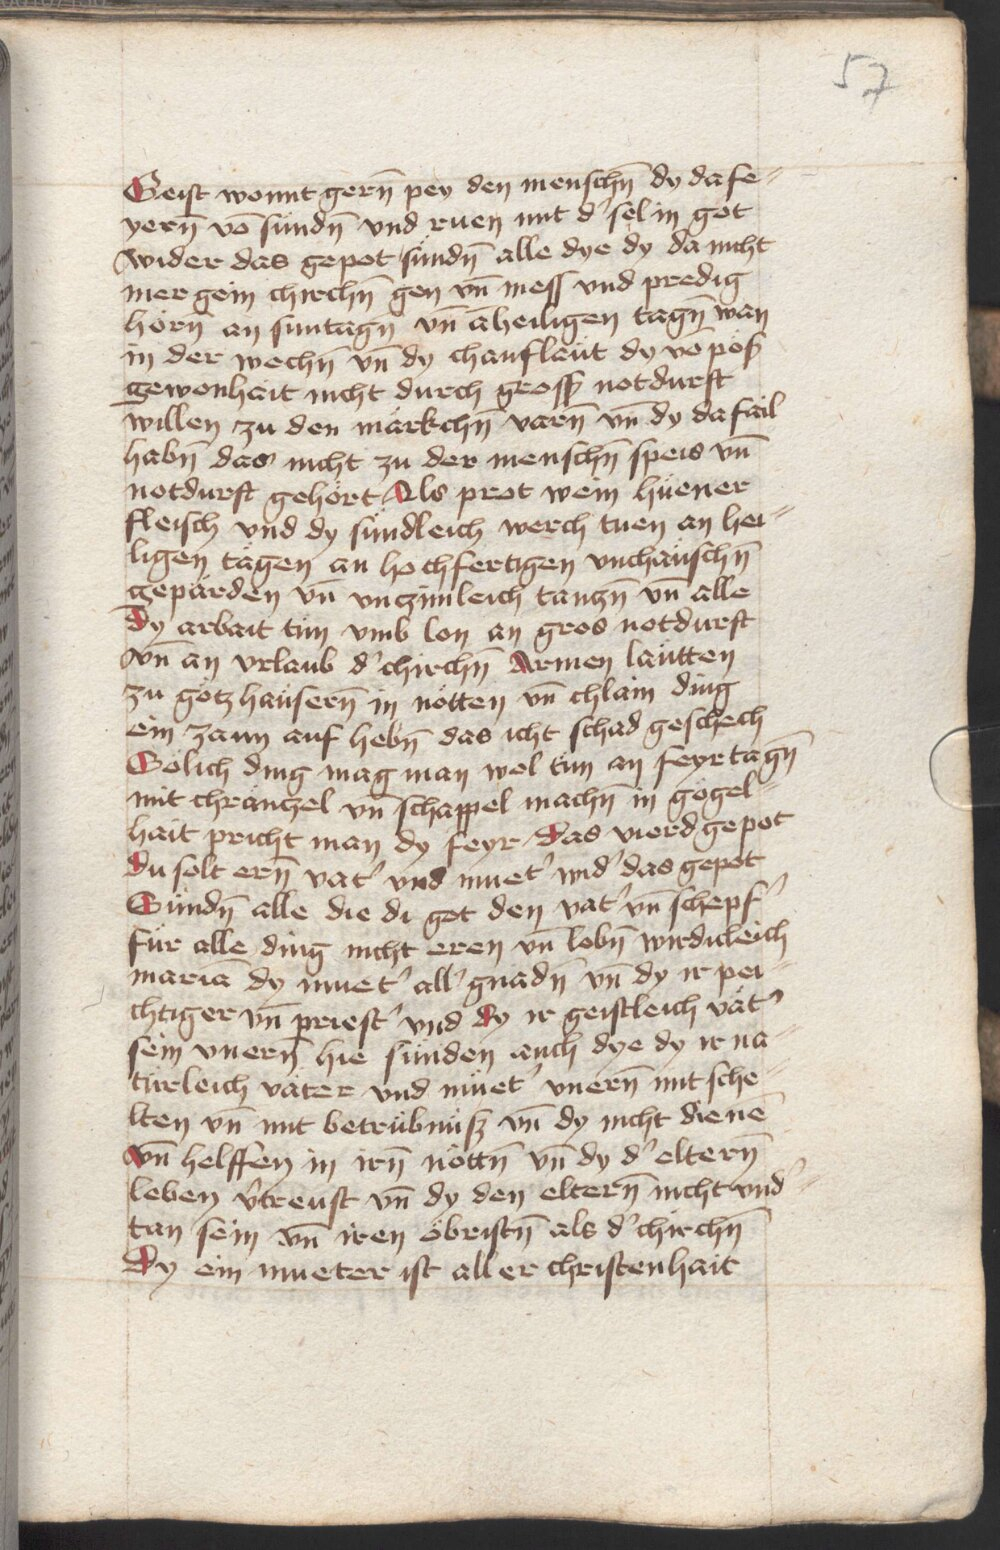 57
Geist wonnt gern̄ pey den menschn̄ dy da fe-
yern̄ vō sündn̄ vnd ruen mit d' sel in got
wider das gepot sündn̄ alle dye dy da nicht
mer gein chirchn̄ gen vn̄ mess vnd predig
hörn̄ an suntagn̄ vn̄ a heiligen tagn̄ wan
in der wechn̄ vn̄ dy chaufleut dy vō pöß
gewonhait nicht durch gross notdurft
willen zu den märkchn̄ varn̄ vn̄ dy da fail
habn̄ das nicht zu der menschn̄ speis vn̄
notdurft gehört Als prot wein hüener
fleisch vnd dy sündleich werch tuen an hei-
ligen tägen an hochfertigen vnchäuschn̄
gepärden vn̄ vnczimleich tanczn̄ vn̄ alle
Dy arbait tün vmb lon an gros notdurft
Vn̄ an vrlaub d' chirchn̄ Armen läutten
zu gotzhäusern̄ in nötten vn̄ chlain ding
ein zaun auf hebn̄ das icht schad geschech
Sölich ding mag man wel tün an feyrtagn̄
mit chränczel vn̄ schappel machn̄ in gogel-
hait pricht man dy feyr Das vierd gepot
Du solt ern̄ vat' vnd muet' wid' das gepot
Sündn̄ alle die di got den vat' vn̄ schepf'
für alle ding nicht eren vn̄ lobn̄ wirdicleich
mariā dy muet' all' gnadn̄ vn̄ dy ir pei-
chtiger vn̄ priest' vnd Dy ir geistleich vät'
sein vnern̄ hie sünden auch dye dy ir na-
türleich väter vnd müet' vnern̄ mit sche-
lten vn̄ mit betrübnüß vn̄ dy nicht dienē
Vn̄ helffen in irn̄ nöttn̄ vn̄ dy d' eltern̄
leben v'dreust vn̄ dy den eltern̄ nicht vnd'
tan sein vn̄ iren öbristn̄ als d' chirchn̄
Dy ein mueter ist aller christenhait